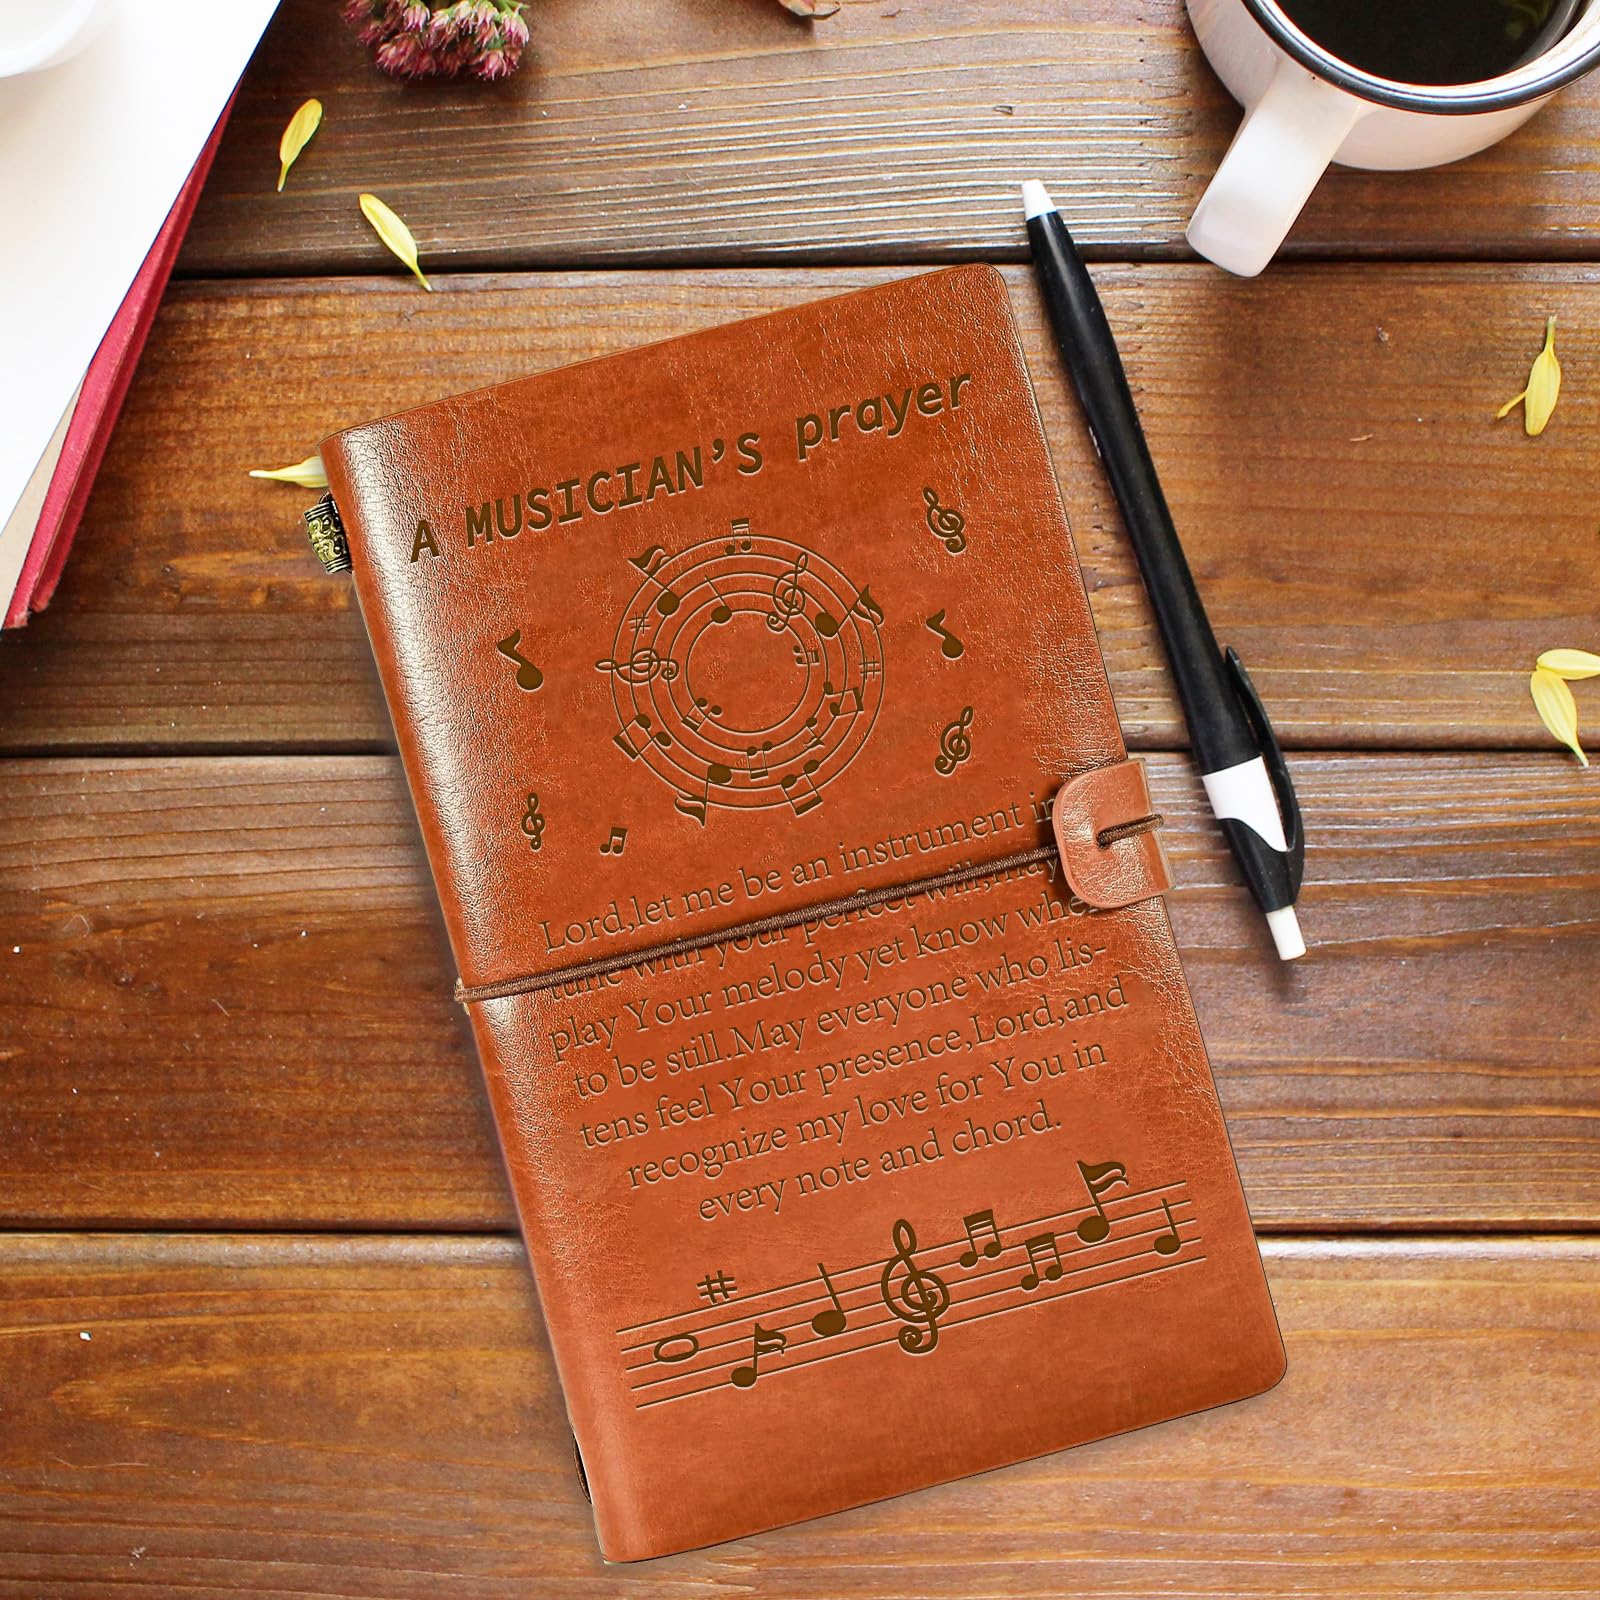 A MUSICIAN’S prayer
Lord,let me be an instrument in
tune with your perfect will,may
play Your melody yet know when
to be still.May everyone who lis-
tens feel Your presence,Lord,and
recognize my love for You in
every note and chord.